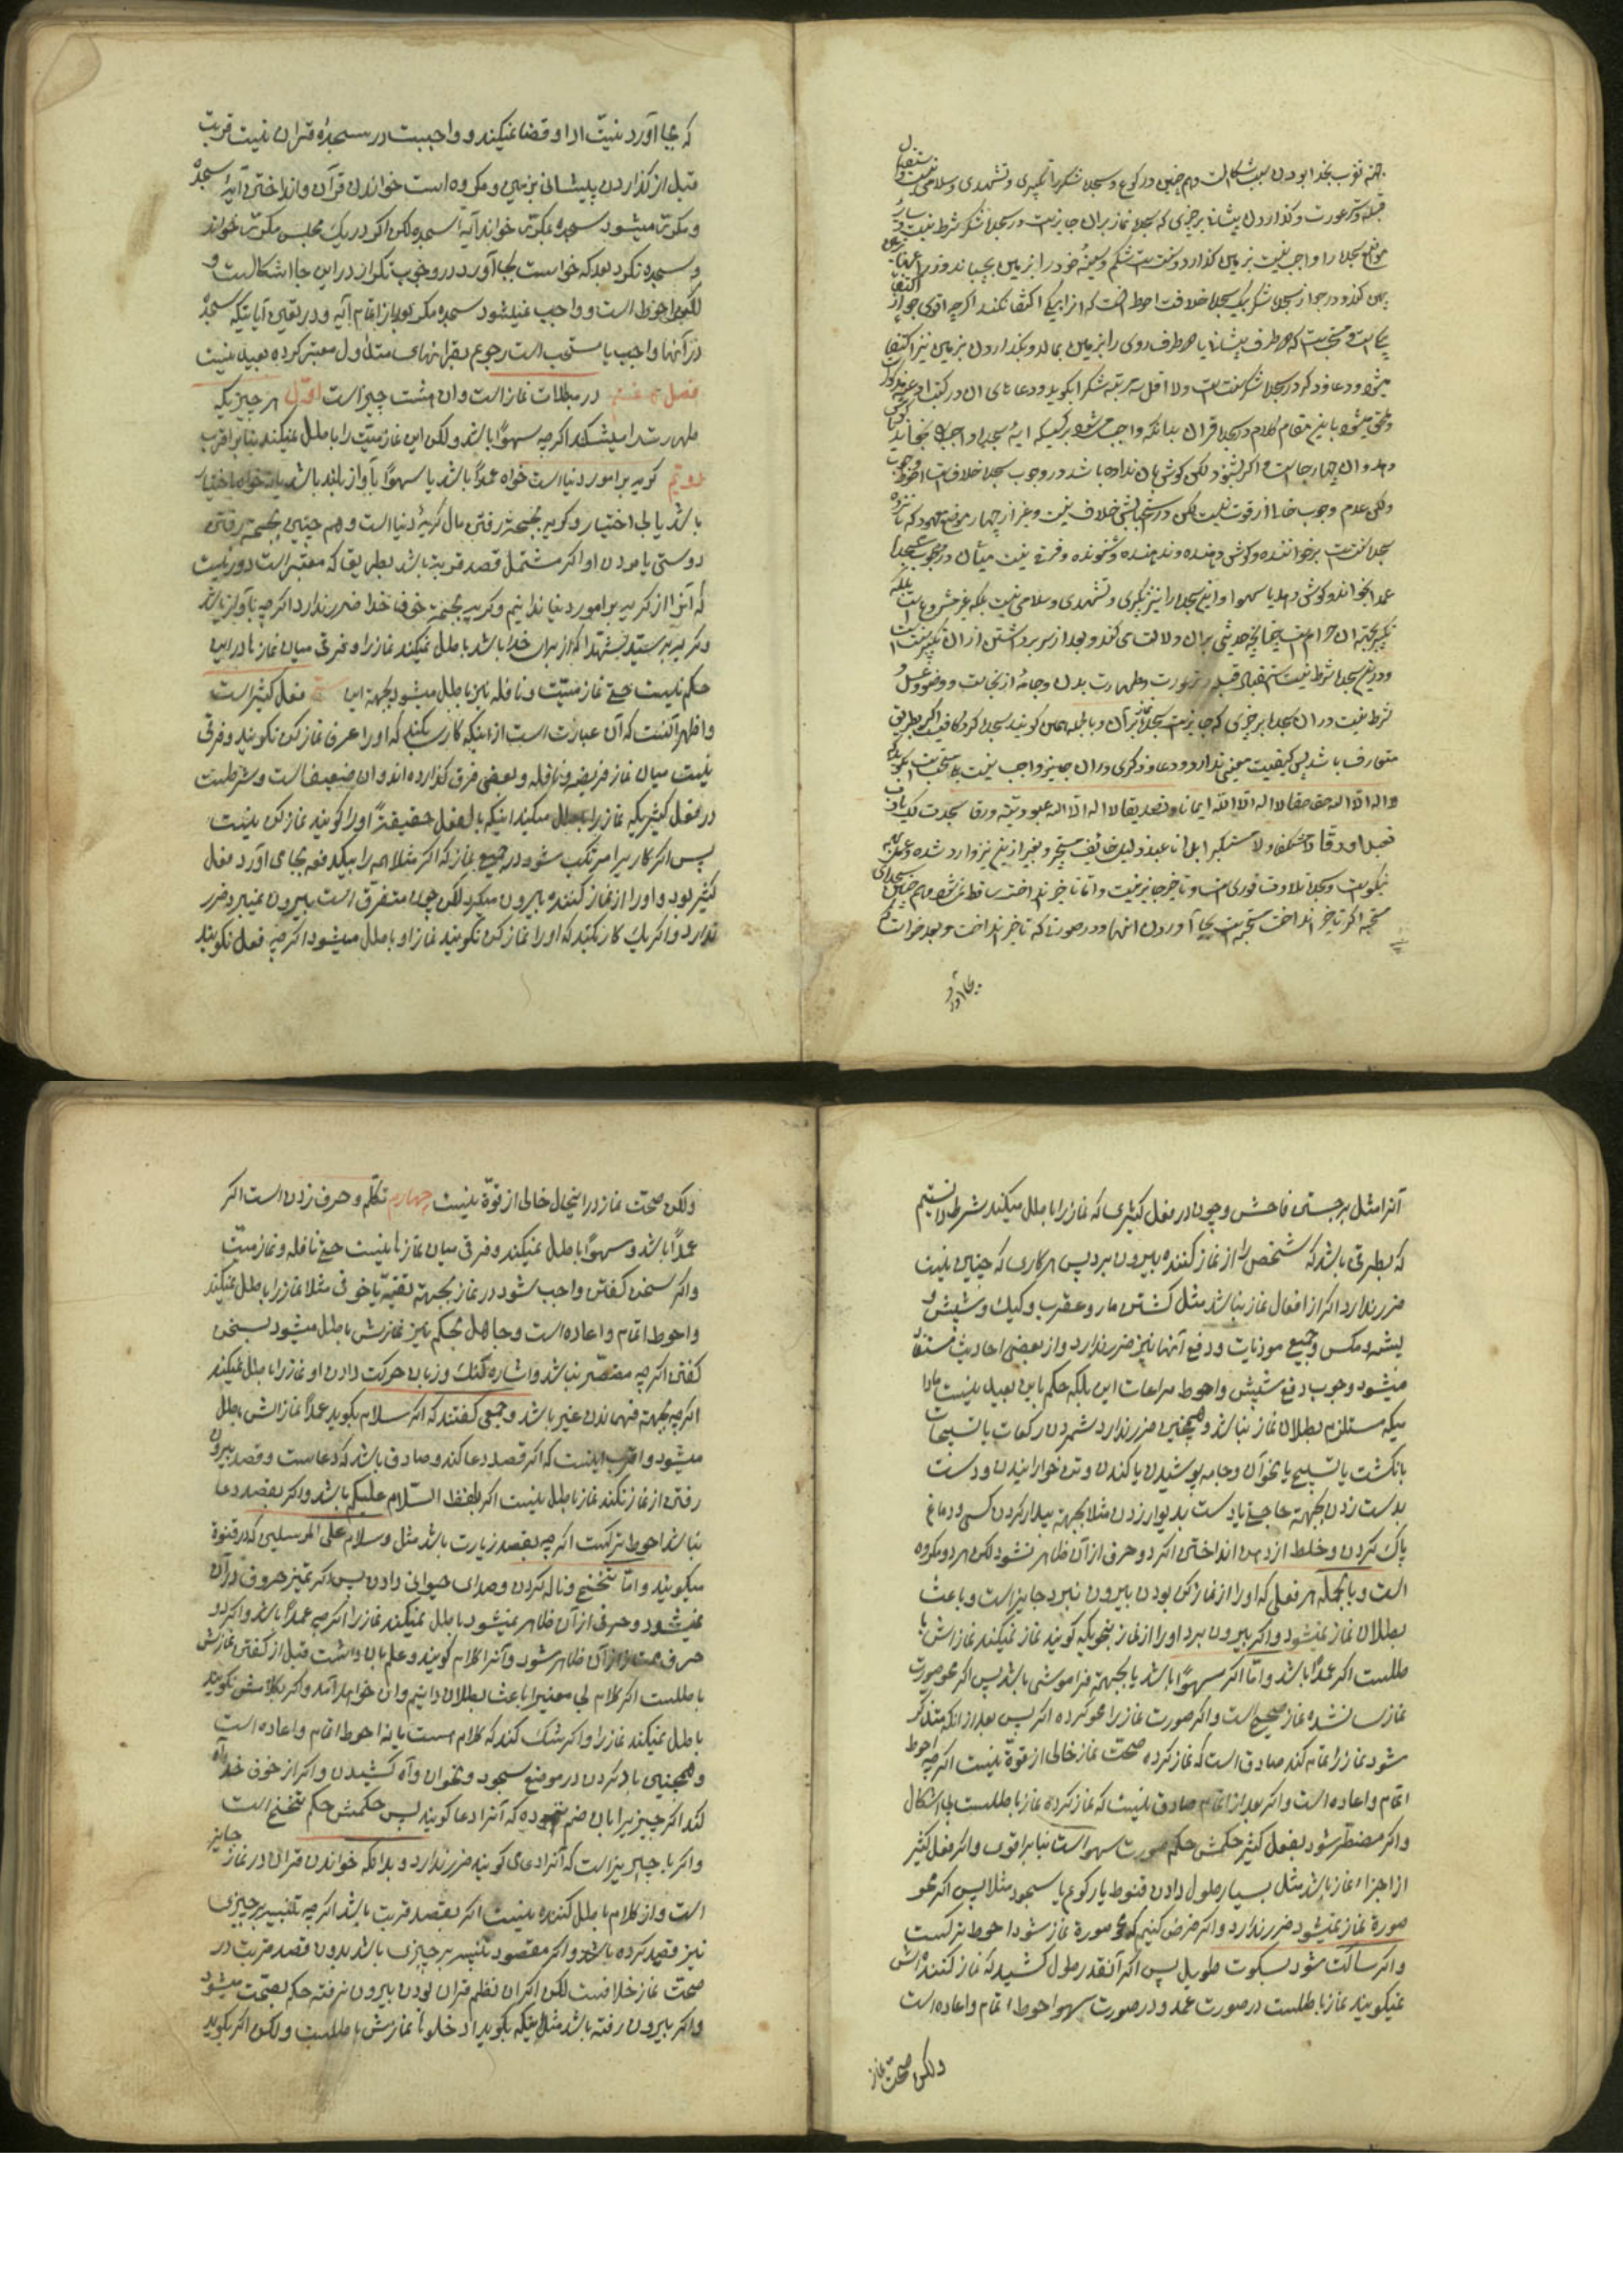 جهة نوب بخدا بودن سبب اشکالست و هم چنین در رکوع و سجده شکر را تکبیری و تشهدی و سلامی نیست و استقبال
قبله و ستر عورت و گذاردن پیشانی بر چیزی که سجده نماز بر آن جایز نیست در سجده شکر شرط نیست و سایر
مواضع سجده را واجب نیست بزمین گذارد و سنت است شکم و سینهٔ خود را بزمین بچسباند و ذراعها
پهن کند و در جواز سجده شکر بیک سجده خلافست احوط آنست که از این یکی اکتفا نکند اگر چه اقوی جواز اکتفا
بیکی است و مستحب است که هر طرف پیشانی یا هر طرف روی را بزمین بمالد و بگذاردن بر زمین نیز اکتفا
میشود و دعا و ذکر در سجده شکر سنت است و لا اقل سه مرتبه شکرا بگوید و دعاهای آن در کتب ادعیه مذکور است
و ملحق میشود باین مقام کلام در سجده قران بدانکه واجب میشود بر کسیکه آیهٔ سجده واجب را بخواند یا گوش
دهد و آن چهار جا است و اگر بشنود لکن گوش بان نداده باشد در وجوب سجده خلاف است احوط وجوب
ولکن عدم وجوب خالی از قوت نیست لکن در استحبابش خلاف نیست و غیر از چهار موضع معهود که پانزده
سجده سنت است بر خواننده و گوش دهنده و شنونده و فرقی نیست میان در وجوب سجده
عمدا بخواند و گوش دهد یا سهوا و این سجده را نیز تکبیری و تشهدی و سلامی نیست بلکه غیر مشروع است بلکه
تکبیر بجهة آن حرام است چنانچه حدیثی بران دلالت می کند و بعد از سر برداشتن از آن تکبیر سنت است
و در این سجده شرط نیست استقبال قبله و ستر عورت و طهارت بدن و جامه از نجاست و وضو و غسل و
شرط نیست در آن سجده بر چیزی که جایز است سجده نماز بر آن و بالجمله همین گویند سجده کرد کافیست اگر بطریق
متعارف باشد پس کیفیت معینی ندارد و دعا و ذکری در آن جایز و واجب نیست بلکه مستحب است بگوید
لا اله الا الله حقا حقا لا اله الا الله ایمانا و تصدیقا لا اله الا الله عبودیة و رقا سجدت لک یا رب
تعبدا و رقا لا مستنکفا و لا مستکبرا بل انا عبد ذلیل خائف مستجیر و بغیر از این نیز وارد شده و عمل بهر
نیکو است و سجده تلاوت فوری است و تاخیر جایز نیست و اما تاخیر انداخت ساقط نمی شود و هم چنین سجده‌های
مستحبه اگر تاخیر انداخت مستحب است بجا آوردن اینها و در صورتی که تاخیر انداخت و بعد خواست
بجا آورد
که بجا آورد نیّت ادا و قضا نمیکند و واجبست در سجدهٔ قران نیت قربت
قبل از گذاردن پیشانی بزمین و مکروه است خواندن قرآن و انداختن آیهٔ سجده
و مکرّر میشود سجده بمکرّر خواندن آیهٔ سجده لکن اگر در یک مجلس مکرّر خواند
و سجده نکرد بعد که خواست بجا آورد در وجوب تکرار در این جا اشکالست و
لکن احوط است و واجب نمیشود سجده مگر بعد از اتمام آیه و در تعیین آیاتیکه سجدهٔ
در آنها واجب یا مستحب است رجوع بقرانهای متداول معتبر کرده بعید نیست
فصل هشتم در مبطلات نماز است و ان هشت چیز است اوّل هر چیزیکه
طهارت را میشکند اگرچه سهوًا باشد ولکن این نماز میّت را باطل نمیکند بنا بر اقرب
دویّم گریه بر امور دنیا است خواه عمدًا باشد یا سهوًا بآواز بلند باشد یا نه خواه باختیار
باشد یا بی اختیار و گریه بجهة رفتن مال گریهٔ دنیا است و هم چنین بجهة رفتن
دوستی یا مردن او اگر مشتمل قصد قربة باشد بطریقیکه معتبر است دور نیست
که آنرا از گریه بر امور دنیا ندانیم و گریه بجهة خوف خدا ضرر ندارد اگرچه بآواز باشد
و گریه بر سیّد شهدا که از برای خدا باشد باطل نمیکند نماز را و فرقی میان نمازها در این
حکم نیست حتّی نماز میّت و نافله نیز باطل میشود بجهة این سیّم فعل کثیر است
و اظهر آنست که آن عبارت است از اینکه کاری بکند که او را عرف نماز کن نگویند و فرقی
نیست میان نماز فریضه و نافله و بعضی فرق گذارده اند و ان ضعیف است و شرطست
در فعل کثیریکه نماز را باطل میکند اینکه بالفعل حقیقةً او را گویند نماز کن نیست
پس اگر کاریرا مرتکب شود در جمیع نماز که اگر مثلا همه را بیکدفعه بجای آورد فعل
کثیر بود و او را از نماز کننده بیرون میکرد لکن چون متفرّق است بیرون نمیبرد ضرر
ندارد و اگر یک کار بکند که او را نماز کن نگویند نماز او باطل میشود اگرچه فعل نگویند
آنرا مثل برجستن فاحش و چون در فعل کثیری که نماز را باطل میکند شرط دانستیم
که بطرقی باشد که شخص را از نماز کننده بیرون برد پس هر کاری که چنین نیست
ضرر ندارد اگر از افعال نماز نباشد مثل کشتن مار و عقرب و کیک و شپش و
پشه و مگس و جمیع موذیات و دفع آنها نیز ضرر ندارد و از بعضی احادیث مستفاد
میشود وجوب دفع شپش و احوط مراعات این بلکه حکم باین بعید نیست مادا
میکه مستلزم بطلان نماز نباشد و همچنین ضرر ندارد شمردن رکعات یا تسبیحات
بانگشت یا تسبیح یا بخوآن و جامه پوشیدن یا کندن و تن خوارانیدن و دست
بدست زدن بجهة حاجتی یا دست بدیوار زدن مثلا بجهة بیدار کردن کسی و دماغ
پاک کردن و خلط از دهن انداختن اگر دو حرف از آن ظاهر نشود لکن هر دو مکروه
است و بالجمله هر فعلی که او را از نماز کن بودن بیرون نبرد جایز است و باعث
بطلان نماز نمیشود و اگر بیرون برد او را از نماز بنحویکه گویند نماز نمیکند نماز اش با
طلست اگر عمدًا باشد و امّا اگر سهوًا باشد یا بجهة فراموشی باشد پس اگر محو صورت
نماز نشده نماز صحیح است و اگر صورت نماز را محو کرده اگر پس بعد از آنکه متذکّر
شود نماز را تمام کند صادق است که نماز کرده صحّت نماز خالی از قوّة نیست اگرچه احوط
اتمام و اعاده است و اگر بعد از اتمام صادق نیست که نماز کرده نماز باطلست بی اشکال
و اگر مضطرّ شود بفعل کثیر حکمش حکم صورت سهو است بنا بر اقوی و اگر فعل کثیر
از اجزاء نماز باشد مثل بسیار طول دادن قنوط یا رکوع یا سجود مثلا پس اگر محو
صورة نماز نمیشود ضرر ندارد و اگر فرض کنیم که محو صورة نماز شود احوط ترکست
و اگر ساکت شود بسکوت طویل پس اگر آنقدر طول کشید که نماز کننده اش
نمیگویند نماز باطلست در صورت عمد و در صورت سهو احوط اتمام و اعاده است
ولکن صحت نماز
ولکن صحّت نماز در اینحال خالی از قوّة نیست چهارم تکلّم و حرف زدن است اگر
عمدًا باشد و سهوًا باطل نمیکند و فرقی میان نمازها نیست حتّی نافله و نماز میّت
و اگر سخن گفتن واجب شود در نماز بجهة تقیّه یا خوفی مثلا نماز را باطل نمیکند
و احوط اتمام و اعاده است و جاهل بحکم نیز نمازش باطل میشود بسخن
گفتن اگرچه مقصّر نباشد و اشاره گنگ و زبان حرکت دادن او نماز را باطل نمیکند
اگرچه بجهة فهماندن غیر باشد و جمعی گفتند که اگر سلام بگوید عمدًا نمازش باطل
میشود و اقرب اینست که اگر قصد دعا کند و صادق باشد که دعاست و قصد بیرون
رفتن از نماز نکند نماز باطل نیست اگر بلفظ السّلام علیکم باشد و اگر بقصد دعا
نباشد احوط ترکست اگرچه بقصد زیارت باشد مثل و سلام علی المرسلین که در قنوة
میگویند و امّا تنحنح و ناله کردن و صدای حیوانی دادن پس اگر تمیز حروف در آن
نمیشود و حرفی از آن ظاهر نمیشود باطل نمیکند نماز را اگرچه عمدًا باشد و اگر دو
حرف از آن ظاهر شود و آنرا کلام گویند و علم بان داشت قبل از گفتن نمازش
باطلست اگر کلام بی معنیرا باعث بطلان دانیم و ان خواهد آمد و اگر کلامش نگویند
باطل نمیکند نماز را و اگر شک کند که کلام است یا نه احوط اتمام و اعاده است
و همچنین باد کردن در موضع سجود و نحو ان و آه کشیدن و اگر از خوف خدا آه
کند اگر چیزیرا بان ضم نموده که آنرا دعا گویند پس حکمش حکم تنحنح است
و اگر با چیزیست که آنرا دعا می گویند ضرر ندارد و بدانکه خواندن قران در نماز جایز
است و از کلام باطل کننده نیست اگر بقصد قربت باشد اگرچه تنبیه بر چیزی
نیز قصد کرده باشد و اگر مقصود تنبیه بر چیزی باشد بدون قصد قربت در
صحّت نماز خلافست لکن اگر ان نظم قران بودن بیرون نرفته حکم بصحّت میشود
و اگر بیرون رفته باشد مثل اینکه بگوید ادخلوها نمازش باطلست ولکن اگر بگوید